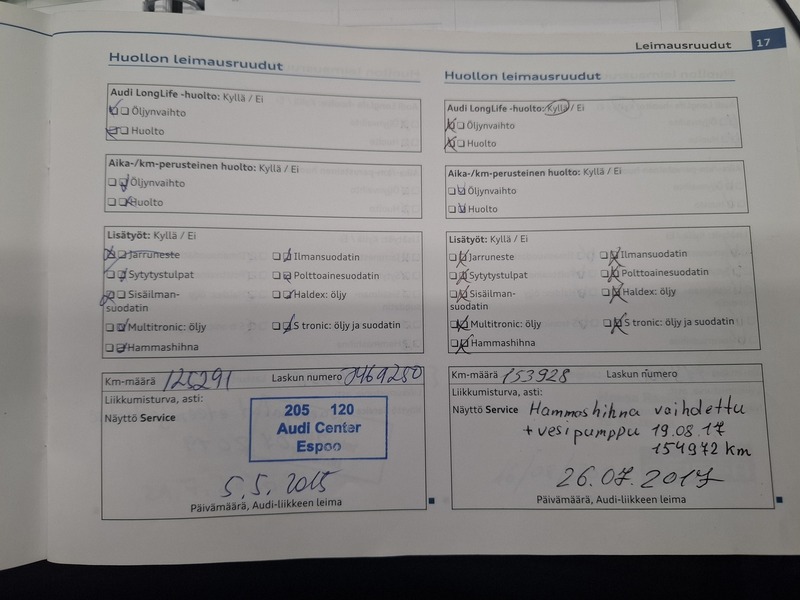 Leimausruudut 17
Huollon leimausruudut
Audi LongLife -huolto: Kyllä / Ei
Öljynvaihto
Huolto
Aika-/km-perusteinen huolto: Kyllä / Ei
Öljynvaihto
Huolto
Lisätyöt: Kyllä / Ei
Jarruneste
Sytytystulpat
Sisäilman-
suodatin
Multitronic: öljy
Hammashihna
Ilmansuodatin
Polttoainesuodatin
Haldex: öljy
S tronic: öljy ja suodatin
Km-määrä 125291 Laskun numero 2469250
Liikkumisturva, asti:
Näyttö Service
205 120
Audi Center
Espoo
5.5. 2015
Päivämäärä, Audi-liikkeen leima
Huollon leimausruudut
Audi LongLife -huolto: Kyllä / Ei
Öljynvaihto
Huolto
Aika-/km-perusteinen huolto: Kyllä / Ei
Öljynvaihto
Huolto
Lisätyöt: Kyllä / Ei
Jarruneste
Sytytystulpat
Sisäilman-
suodatin
Multitronic: öljy
Hammashihna
Ilmansuodatin
Polttoainesuodatin
Haldex: öljy
S tronic: öljy ja suodatin
Km-määrä 153928 Laskun numero
Liikkumisturva, asti:
Näyttö Service Hammashihna vaihdettu
+ vesipumppu 19.08.17
154972 km
26.07.2017
Päivämäärä, Audi-liikkeen leima